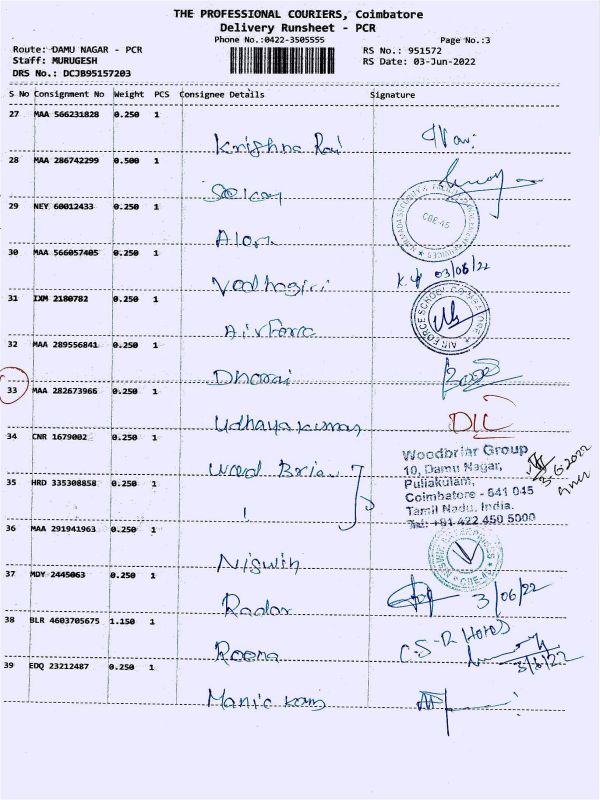 THE PROFESSIONAL COURIERS, Coimbatore
Delivery Runsheet - PCR
Phone No.:0422-3505555 Page No.:3
Route: DAMU NAGAR - PCR RS No.: 951572
Staff: MURUGESH RS Date: 03-Jun-2022
DRS No.: DCJB95157203
S No Consignment No Weight PCS Consignee Details Signature
27 MAA 566231828 0.250 1
Krishna Raj
28 MAA 286742299 0.500 1
29 NEY 60012433 0.250 1
CBE-45
30 MAA 566057405 0.250 1
Vedhagiri 03/06/22
31 IXM 2180782 0.250 1
Airforce AIR FORCE SCHOOL
32 MAA 289556841 0.250 1
33 MAA 282673966 0.250 1
Udhayakumar
34 CNR 1679002 0.250 1
Wood Briar
Woodbriar Group
10, Damu Nagar,
Puliakulam,
Coimbatore - 641 045
Tamil Nadu, India.
Tel: +91 422 450 5000
35 HRD 335308858 0.250 1
36 MAA 291941963 0.250 1
Niswin
37 MDY 2445063 0.250 1
Radar 3/06/22
38 BLR 4603705675 1.150 1
Reema
39 EDQ 23212487 0.250 1